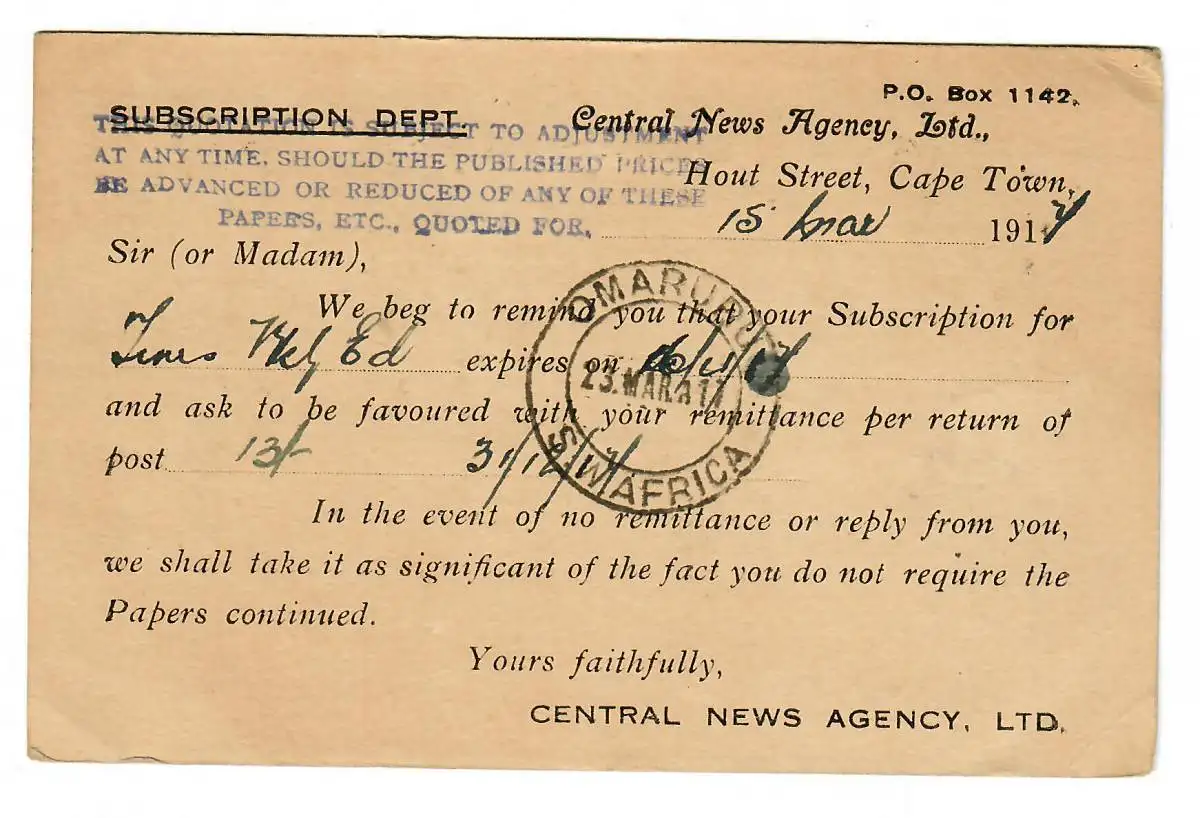 P.O. Box 1142.
SUBSCRIPTION DEPT. Central News Agency, Ltd.,
THIS QUOTATION IS SUBJECT TO ADJUSTMENT
AT ANY TIME. SHOULD THE PUBLISHED PRICES
BE ADVANCED OR REDUCED OF ANY OF THESE
PAPERS, ETC., QUOTED FOR,
Hout Street, Cape Town,
15 Mar 1917
Sir (or Madam),
We beg to remind you that your Subscription for
Times Wkl Ed expires on
and ask to be favoured with your remittance per return of
post 13/- 31/12/17
OMARURU
23.MAR.17
S.W.AFRICA
In the event of no remittance or reply from you,
we shall take it as significant of the fact you do not require the
Papers continued.
Yours faithfully,
CENTRAL NEWS AGENCY, LTD.